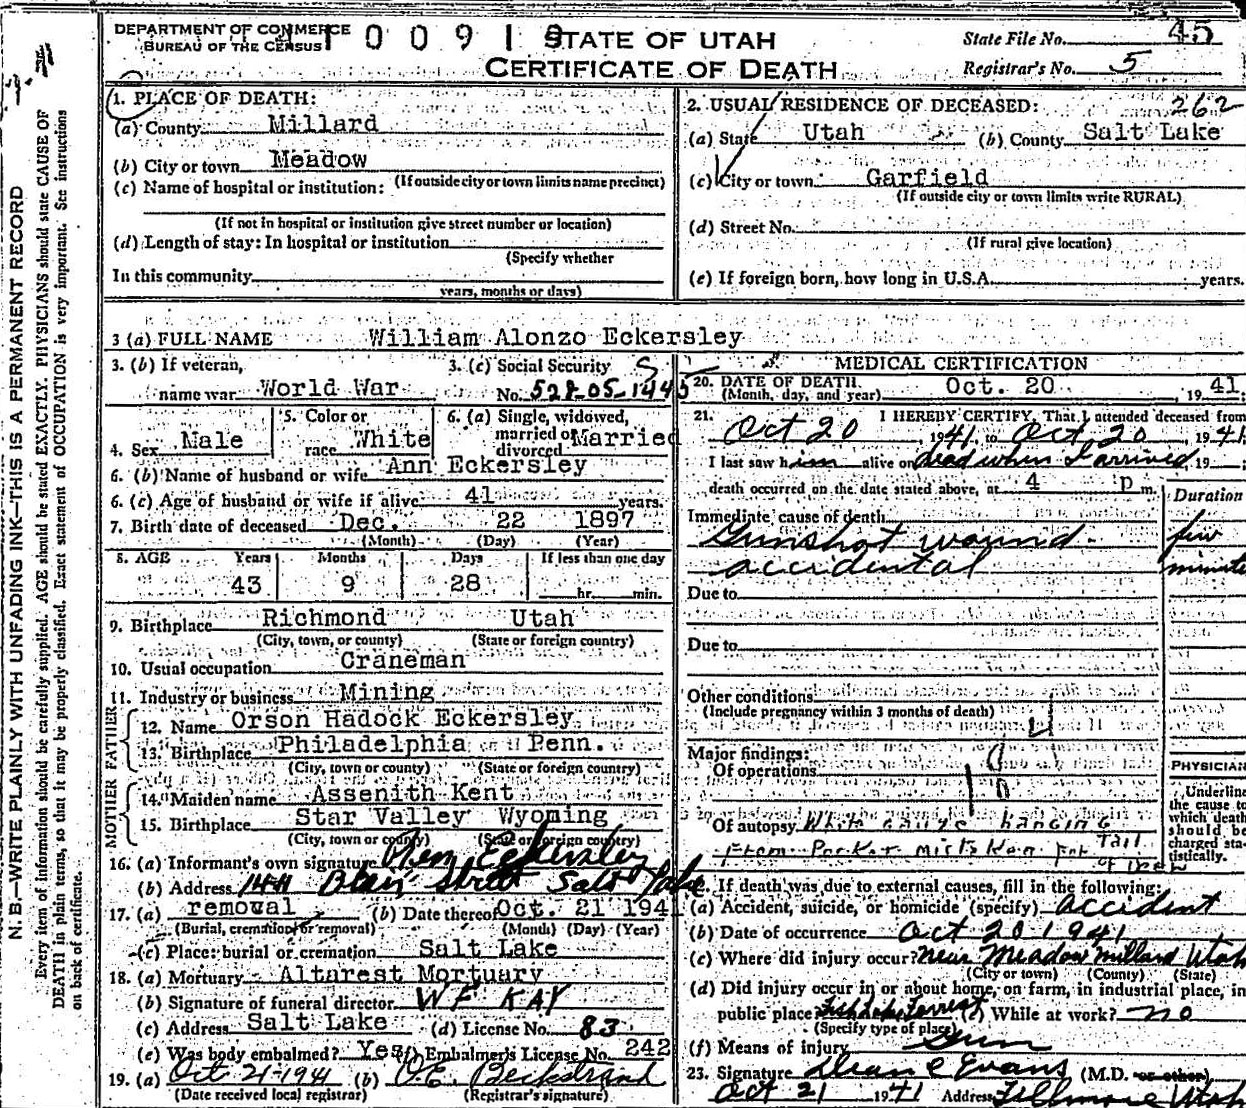 DEPARTMENT OF COMMERCE
BUREAU OF THE CENSUS
STATE OF UTAH
CERTIFICATE OF DEATH
State File No. 45
Registrar's No. 5
N.B.—WRITE PLAINLY WITH UNFADING INK—THIS IS A PERMANENT RECORD
Every item of information should be carefully supplied. AGE should be stated EXACTLY. PHYSICIANS should state CAUSE OF
DEATH in plain terms, so that it may be properly classified. Exact statement of OCCUPATION is very important. See instructions
on back of certificate.
1. PLACE OF DEATH:
(a) County Millard
(b) City or town Meadow
(If outside city or town limits name precinct)
(c) Name of hospital or institution:
(If not in hospital or institution give street number or location)
(d) Length of stay: In hospital or institution
(Specify whether
In this community
years, months or days)
2. USUAL RESIDENCE OF DECEASED: 262
(a) State Utah (b) County Salt Lake
(c) City or town Garfield
(If outside city or town limits write RURAL)
(d) Street No.
(If rural give location)
(e) If foreign born, how long in U.S.A. years.
3 (a) FULL NAME William Alonzo Eckersley
3. (b) If veteran, name war World War
3. (c) Social Security No.
4. Sex Male
5. Color or race White
6. (a) Single, widowed, married or divorced Married
6. (b) Name of husband or wife Ann Eckersley
6. (c) Age of husband or wife if alive 41 years.
7. Birth date of deceased Dec. 22 1897
(Month) (Day) (Year)
8. AGE Years Months Days If less than one day
43 9 28 hr. min.
9. Birthplace Richmond Utah
(City, town, or county) (State or foreign country)
10. Usual occupation Craneman
11. Industry or business Mining
FATHER
12. Name Orson Hadock Eckersley
13. Birthplace Philadelphia Penn.
(City, town or county) (State or foreign country)
MOTHER
14. Maiden name Assenith Kent
15. Birthplace Star Valley Wyoming
(City, town or county) (State or foreign country)
16. (a) Informant's own signature Eckersley
(b) Address Blair Street Salt Lake
17. (a) removal (b) Date thereof Oct. 21 1941
(Burial, cremation or removal) (Month) (Day) (Year)
(c) Place: burial or cremation Salt Lake
18. (a) Mortuary Altarest Mortuary
(b) Signature of funeral director W F KAY
(c) Address Salt Lake (d) License No. 83
(e) Was body embalmed? Yes (f) Embalmer's License No. 242
19. (a) Oct 21-1941 (b) O.E. Beckstrand
(Date received local registrar) (Registrar's signature)
MEDICAL CERTIFICATION
20. DATE OF DEATH Oct. 20, 1941
(Month, day, and year)
21. I HEREBY CERTIFY, That I attended deceased from
Oct 20, 1941, to Oct 20, 1941
I last saw him alive on dead when I arrived, 19 ;
death occurred on the date stated above, at 4 p m.
Duration
Immediate cause of death
Gunshot wound - few
accidental minutes
Due to
Due to
Other conditions
(Include pregnancy within 3 months of death)
Major findings:
Of operations
Of autopsy White hanging
from mistaken for tail
of deer
PHYSICIAN
Underline
the cause to
which death
should be
charged sta-
tistically.
22. If death was due to external causes, fill in the following:
(a) Accident, suicide, or homicide (specify) accident
(b) Date of occurrence Oct 20 1941
(c) Where did injury occur? near Meadow Millard Utah
(City or town) (County) (State)
(d) Did injury occur in or about home, on farm, in industrial place, in
public place? (e) While at work? no
(Specify type of place)
(f) Means of injury Gun
23. Signature Dean C Evans (M.D. or other)
Oct 21 1941 Address Fillmore Utah